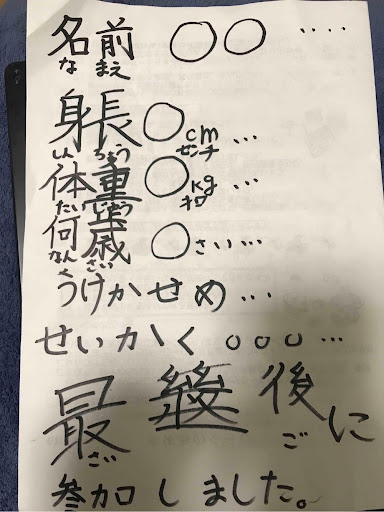 名前 〇〇 ....
なまえ
身長 〇cm ...
しんちょう センチ
体重 〇kg ...
たいじゅう キロ
何歳 〇さい...
なんさい
うけかせめ...
せいかく 〇〇〇...
最後に
さいご
参加しました。